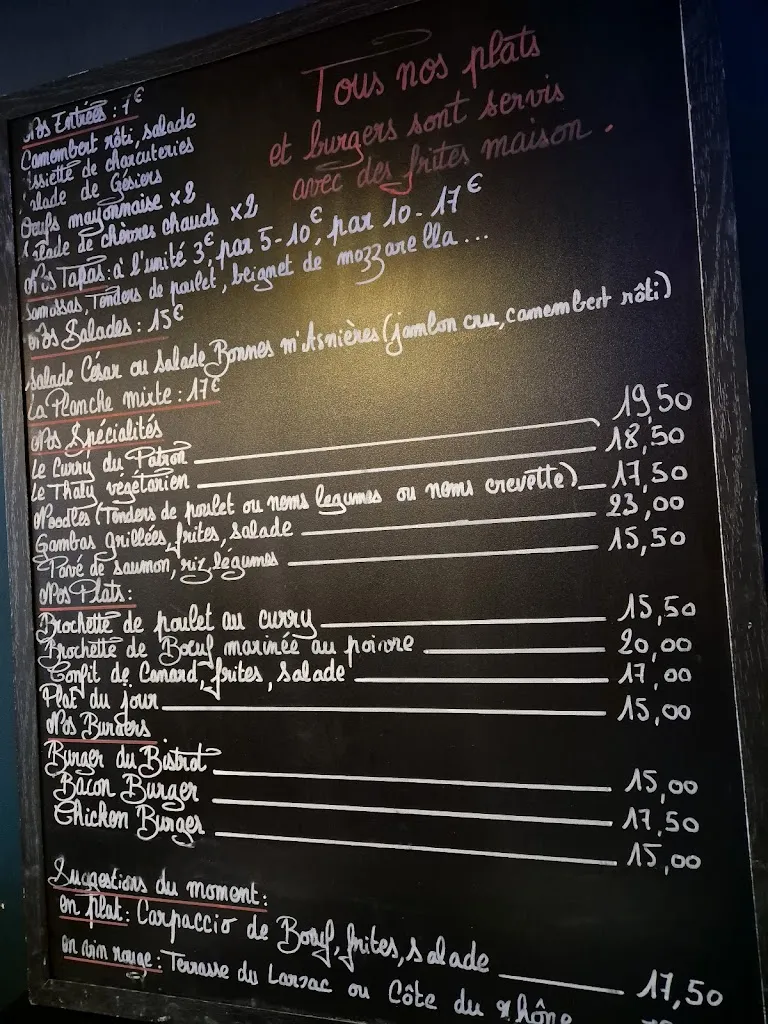 Tous nos plats
et burgers sont servis
avec des frites maison.
Nos Entrées : 7€
Camembert rôti, salade
Assiette de charcuteries
Salade de Gésiers
Oeufs mayonnaise x2
Salade de chèvres chauds x2
Nos Tapas : à l'unité 3€, par 5-10€, par 10-17€
Samossas, Tenders de poulet, beignet de mozzarella...
Nos Salades : 15€
Salade César ou Salade Bonnes m'Asnières (jambon cru, camembert rôti)
La Planche mixte : 17€
Nos Spécialités
Le Curry du Patron 19,50
Le Thaly végétarien 18,50
Noodles (Tenders de poulet ou nems legumes ou nems crevette) 17,50
Gambas grillées, frites, salade 23,00
Pavé de saumon, riz, légumes 15,50
Nos Plats :
Brochette de poulet au curry 15,50
Brochette de Boeuf marinée au poivre 20,00
Confit de Canard, frites, salade 17,00
Plat du jour 15,00
Nos Burgers
Burger du Bistrot 15,00
Bacon Burger 17,50
Chicken Burger 15,00
Suggestions du moment :
en plat : Carpaccio de Boeuf, frites, salade 17,50
en vin rouge : Terrasse du Larzac ou Côte du rhône